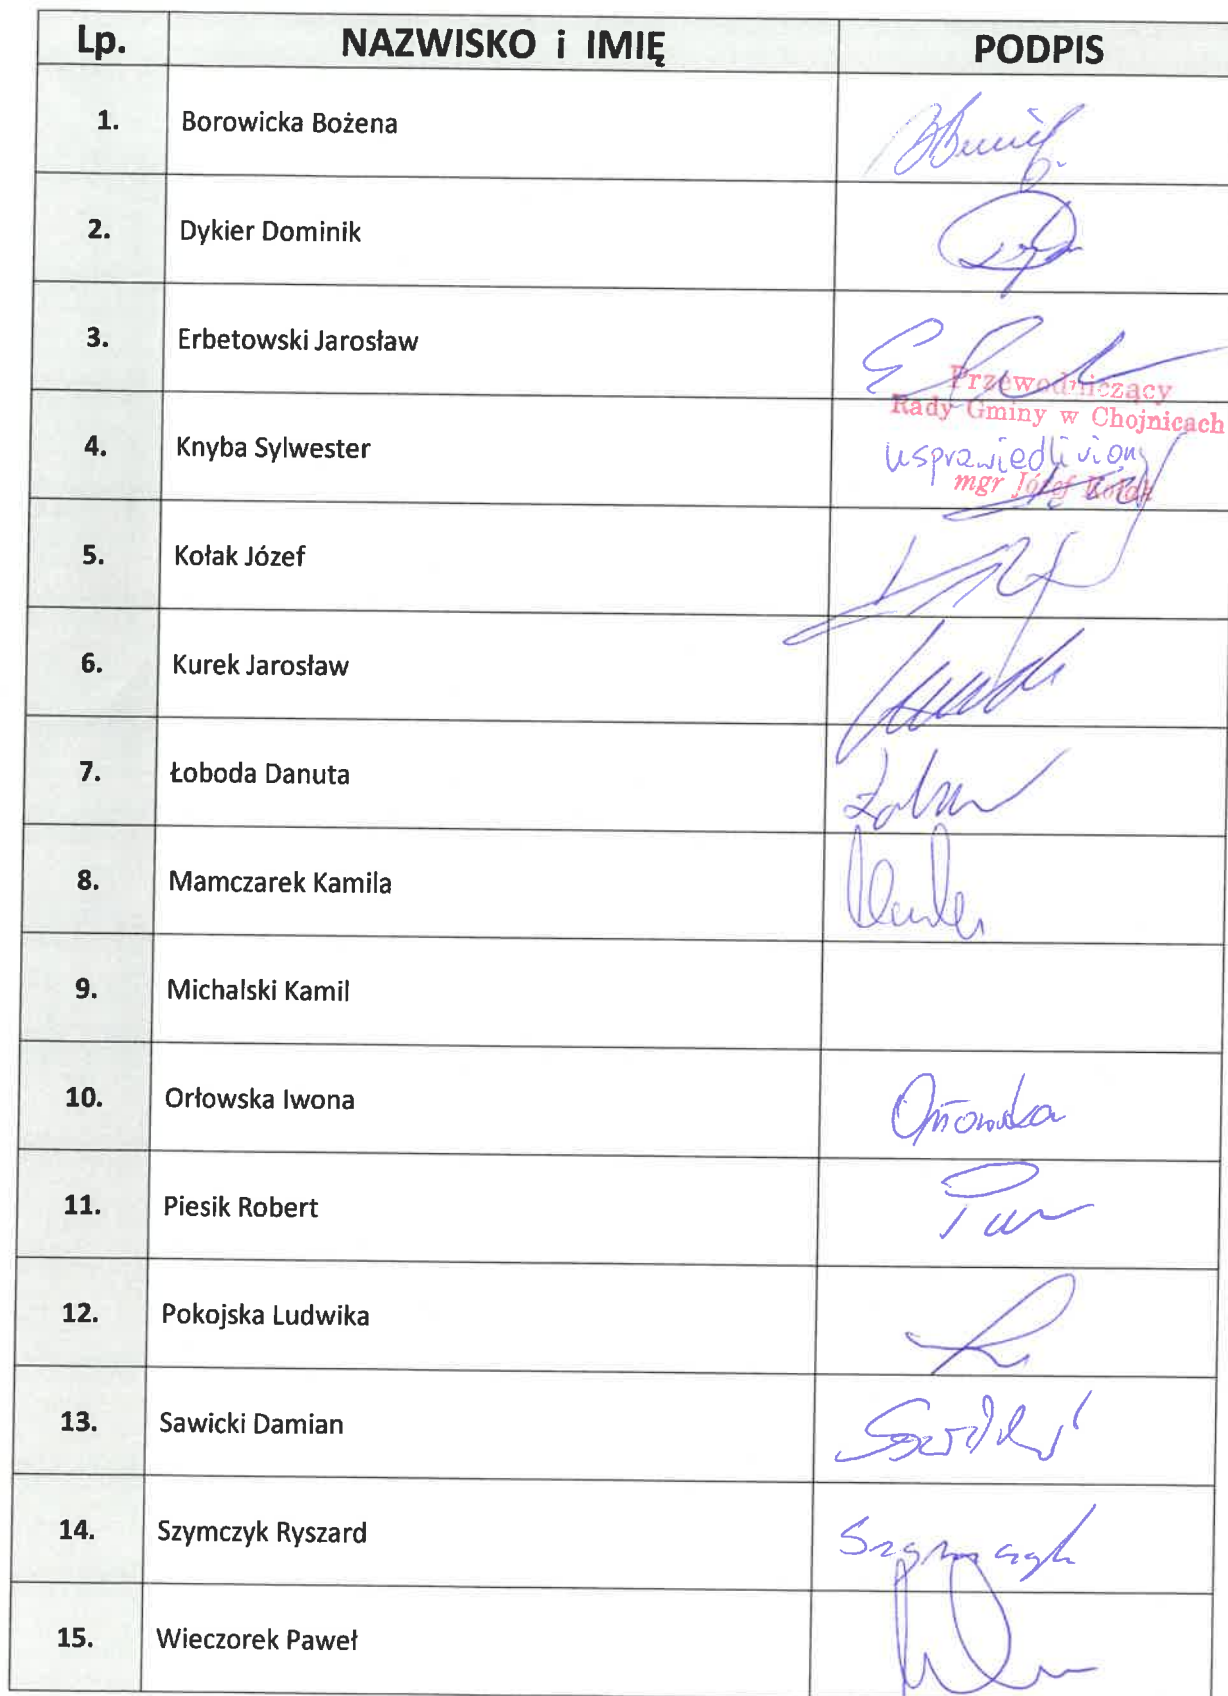 Lp. NAZWISKO i IMIĘ PODPIS
1. Borowicka Bożena
2. Dykier Dominik
3. Erbetowski Jarosław
Przewodniczący
Rady Gminy w Chojnicach
4. Knyba Sylwester usprawiedliwiony
mgr Józef Kołak
5. Kołak Józef
6. Kurek Jarosław
7. Łoboda Danuta
8. Mamczarek Kamila
9. Michalski Kamil
10. Orłowska Iwona Orłowska
11. Piesik Robert
12. Pokojska Ludwika
13. Sawicki Damian
14. Szymczyk Ryszard Szymczyk
15. Wieczorek Paweł